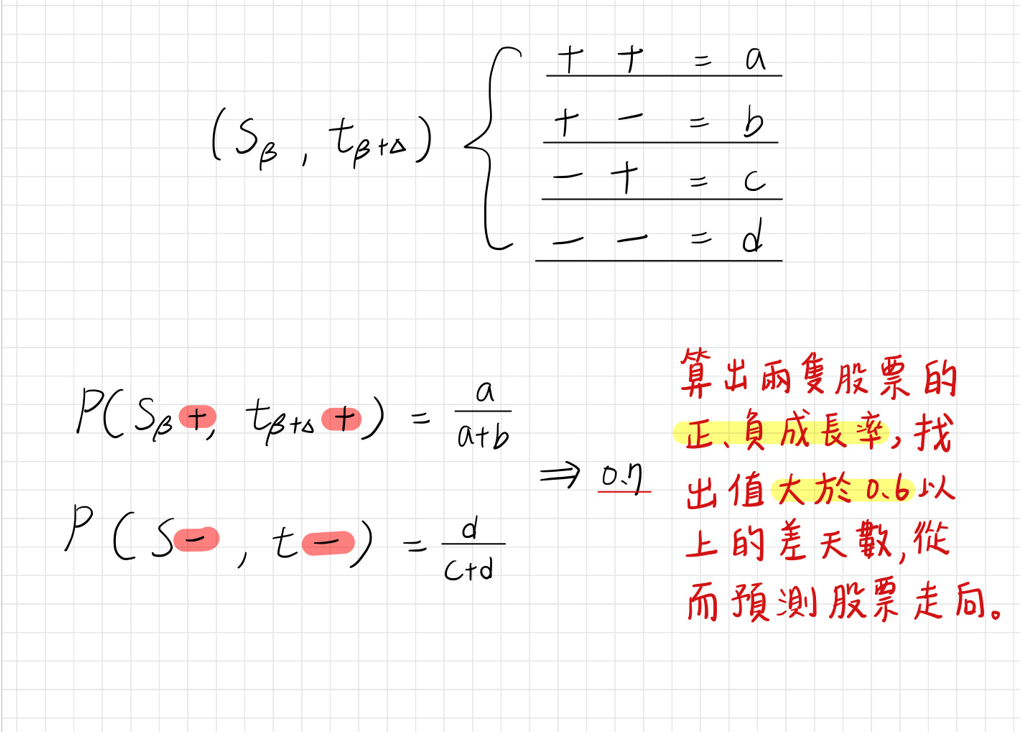 + + = a
(Sβ , tβ+Δ) { + - = b
- + = c
- - = d
P(Sβ+, tβ+Δ+) = a/(a+b)
P(S-, t-) = d/(c+d)
⇒ 0.7
算出兩隻股票的
正、負成長率,找
出值大於0.6以
上的差天數,從
而預測股票走向。